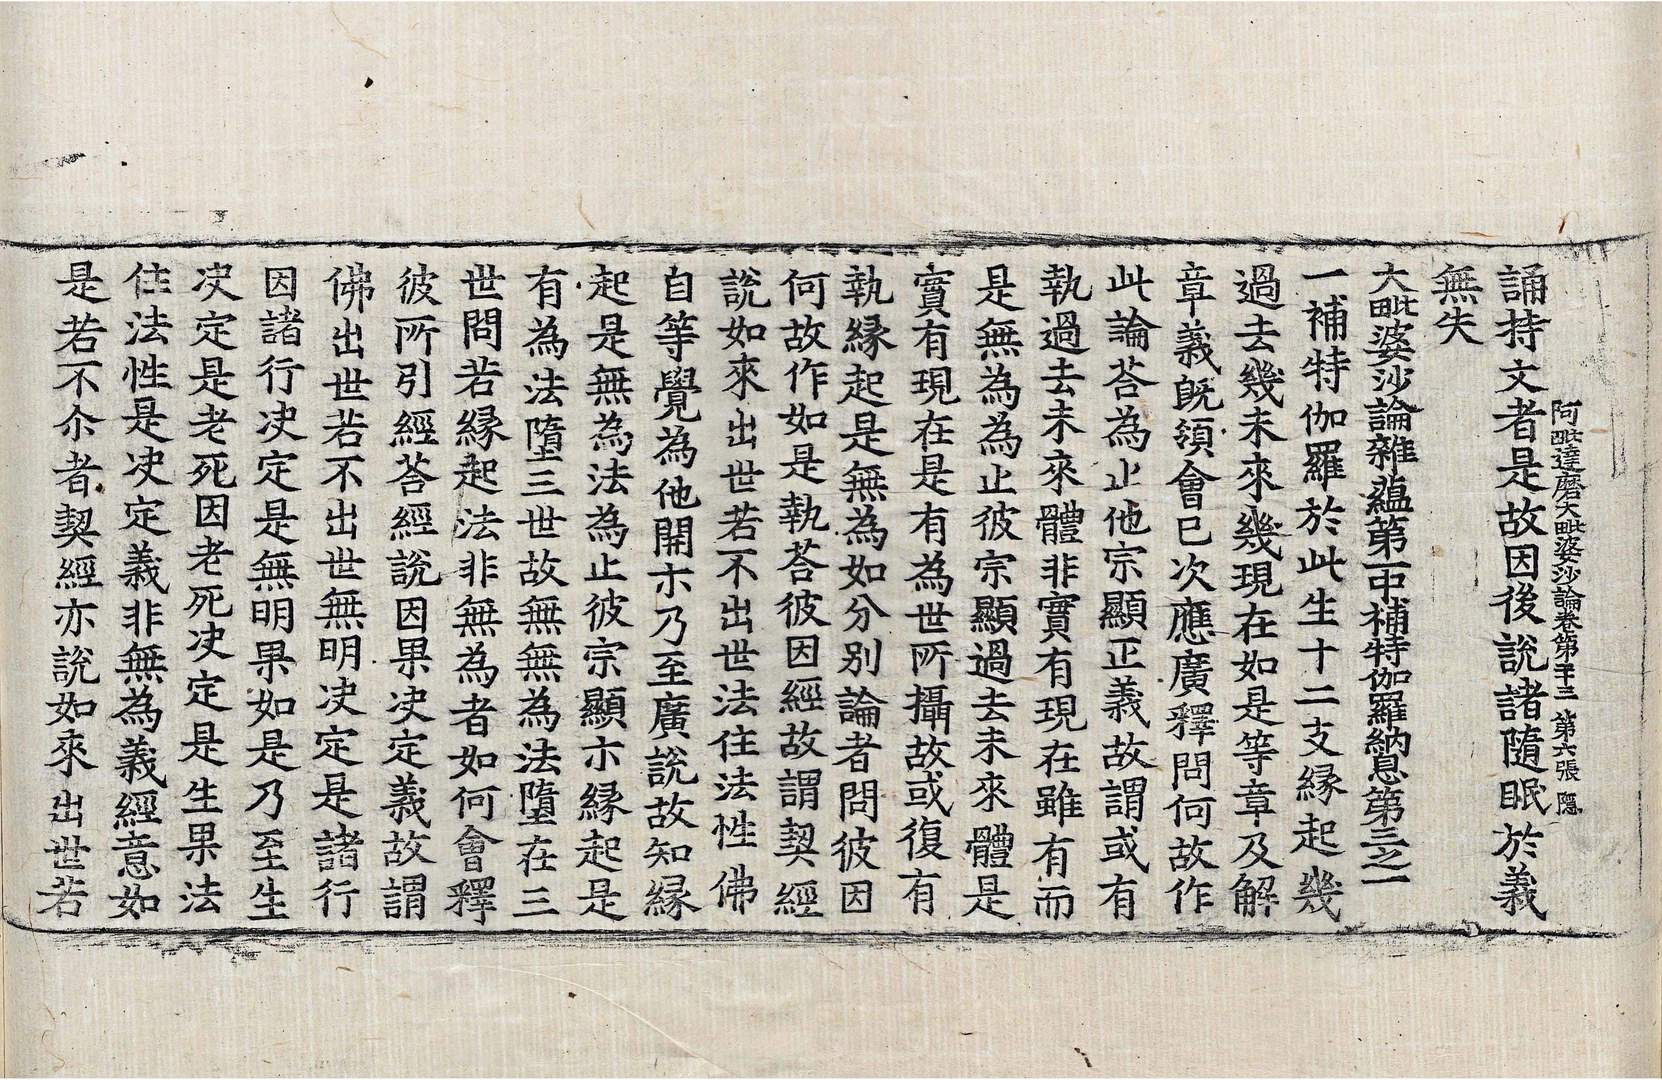 阿毗達磨大毗婆沙論卷第二十三 第六張 隱
誦持文者是故因後說諸隨眠於義
無失
大毗婆沙論雜藴第一中補特伽羅納息第三之一
一補特伽羅於此生十二支緣起幾
過去幾未來幾現在如是等章及解
章義既領會已次應廣釋問何故作
此論荅為止他宗顯正義故謂或有
執過去未來體非實有現在雖有而
是無為為止彼宗顯過去未來體是
實有現在是有為世所攝故或復有
執緣起是無為如分別論者問彼因
何故作如是執荅彼因經故謂契經
說如來出世若不出世法住法性佛
自等覺為他開示乃至廣說故知緣
起是無為法為止彼宗顯示緣起是
有為法墮三世故無無為法墮在三
世問若緣起法非無為者如何會釋
彼所引經荅經說因果決定義故謂
佛出世若不出世無明決定是諸行
因諸行決定是無明果如是乃至生
決定是老死因老死決定是生果法
住法性是決定義非無為義經意如
是若不尒者契經亦說如來出世若